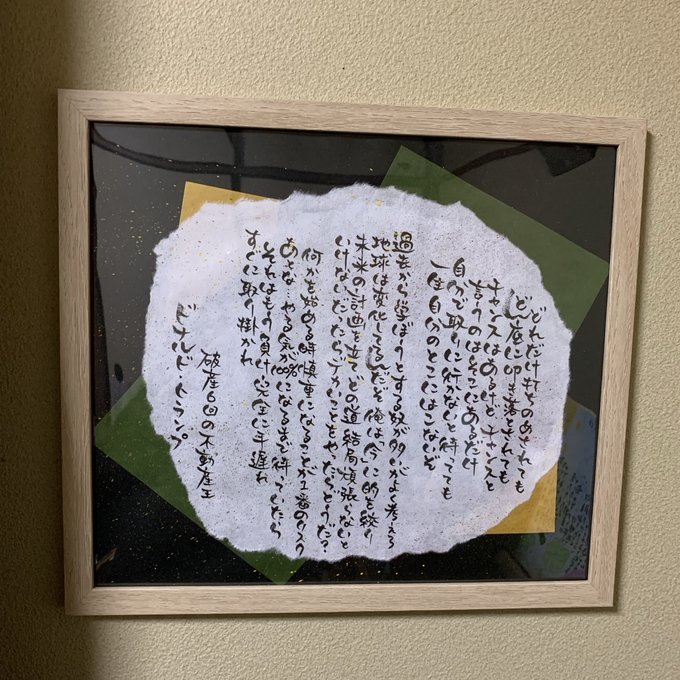 どれだけ打ちのめされても
どん底に叩き落とされても
チャンスはあるけど チャンスと
言うのはそこにあるだけ
自分で取りに行かないと待ってても
一生自分のとこにはこないぞ
過去から学ぼうとする奴が多いがよく考えろ
地球は変化してるんだぞ 俺は、今に的を絞り
未来の計画を立て、どの道結局頑張らないと
いけないんだったらデカいことをやったらどうだ?
何かを始める時慎重になることが1番のリスク
あとな…やる気が100%になるまで待っていたら
それはもう負け 完全に手遅れ
すぐに取り掛かれ
破産6回の不動産王
ドナルド・トランプ